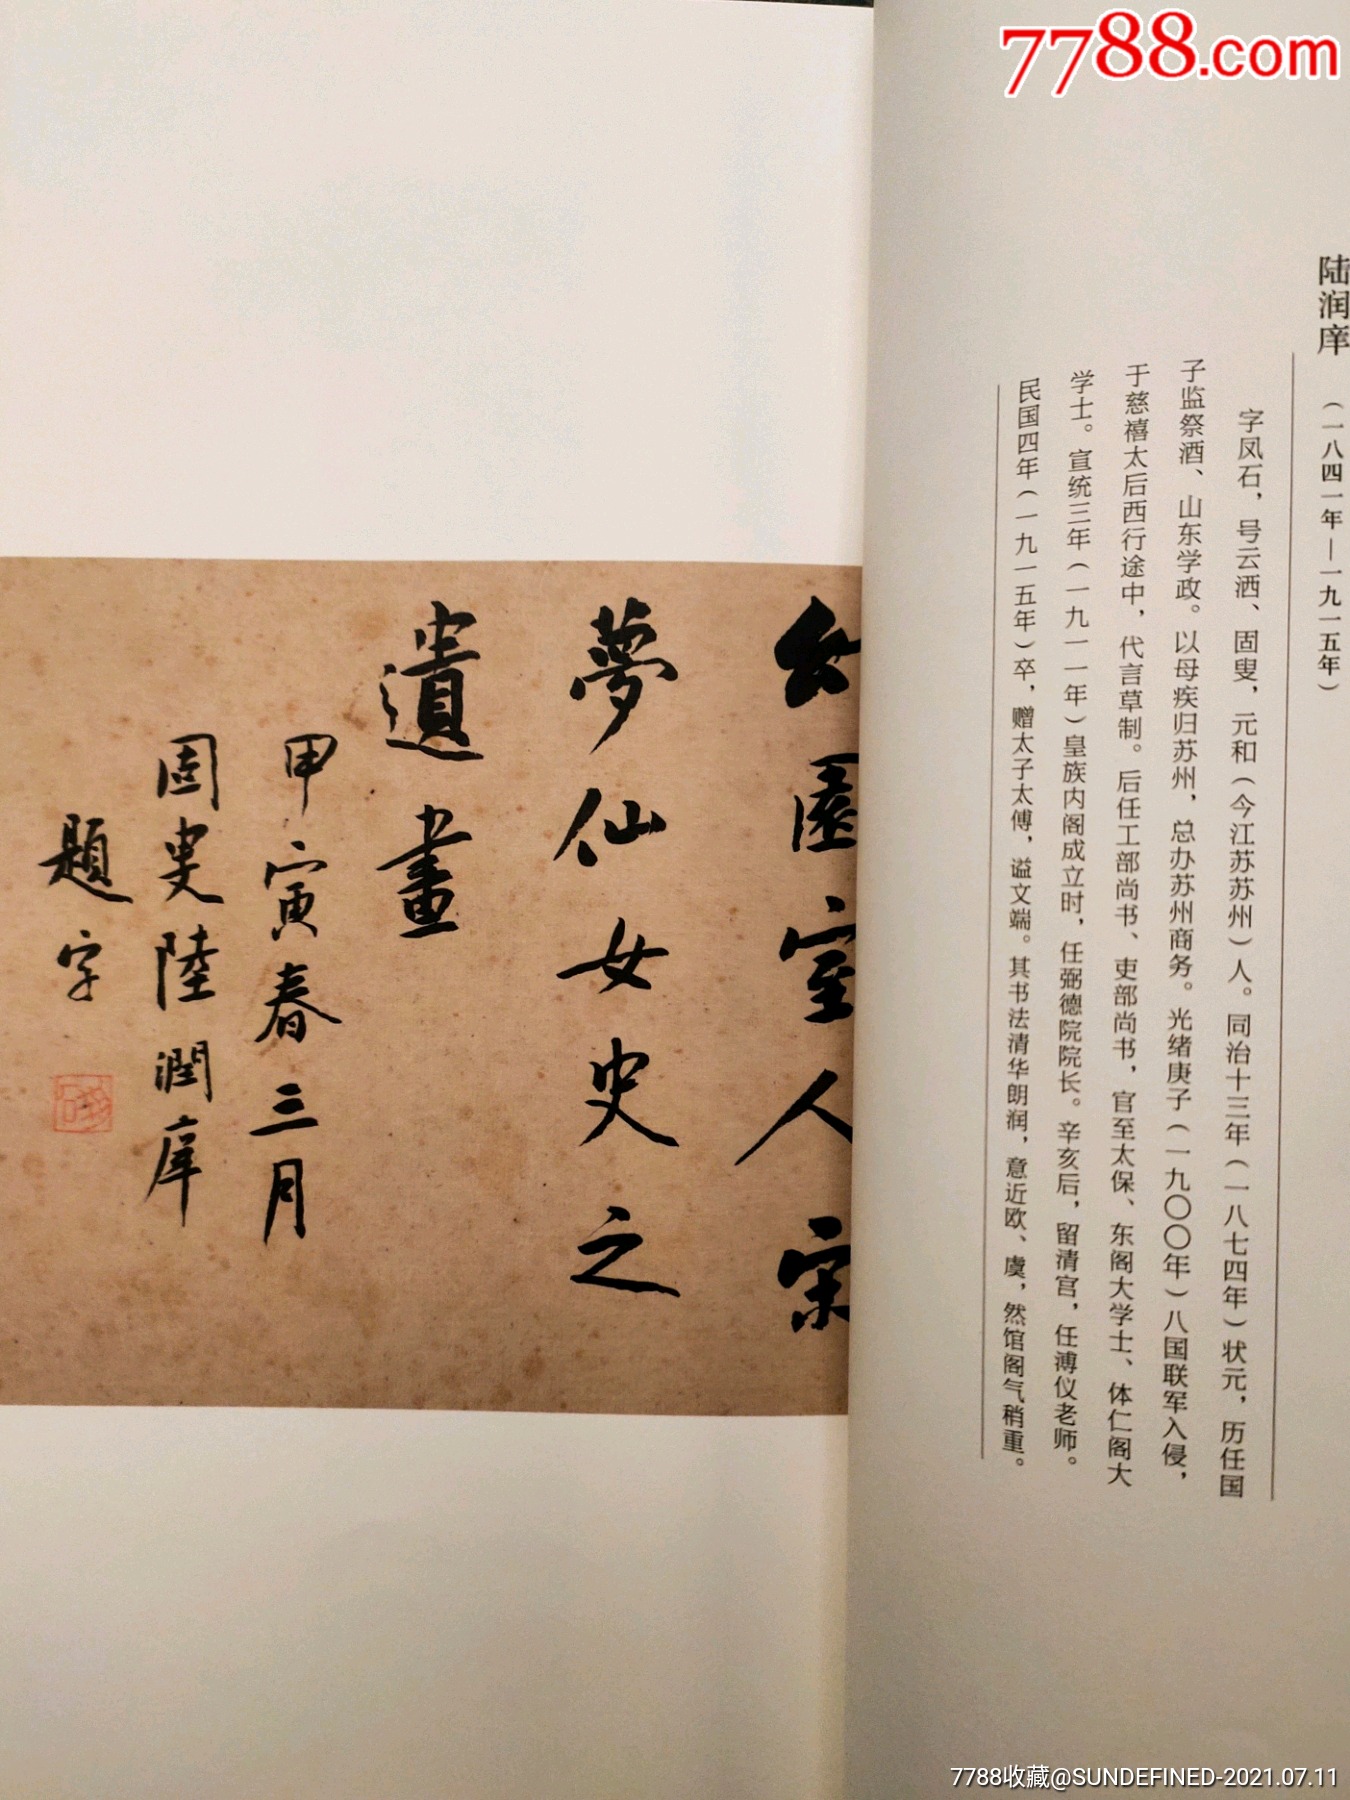 7788.com
陆润庠 （一八四一年—一九一五年）
字凤石，号云洒、固叟，元和（今江苏苏州）人。同治十三年（一八七四年）状元，历任国
子监祭酒、山东学政。以母疾归苏州，总办苏州商务。光绪庚子（一九〇〇年）八国联军入侵，
于慈禧太后西行途中，代言草制。后任工部尚书、吏部尚书，官至太保、东阁大学士、体仁阁大
学士。宣统三年（一九一一年）皇族内阁成立时，任弼德院院长。辛亥后，留清宫，任溥仪老师。
民国四年（一九一五年）卒，赠太子太傅，谥文端。其书法清华朗润，意近欧、虞，然馆阁气稍重。
園室人宗
夢仙女史之
遺畫
甲寅春三月
固叟陸潤庠
題字
7788收藏@SUNDEFINED-2021.07.11